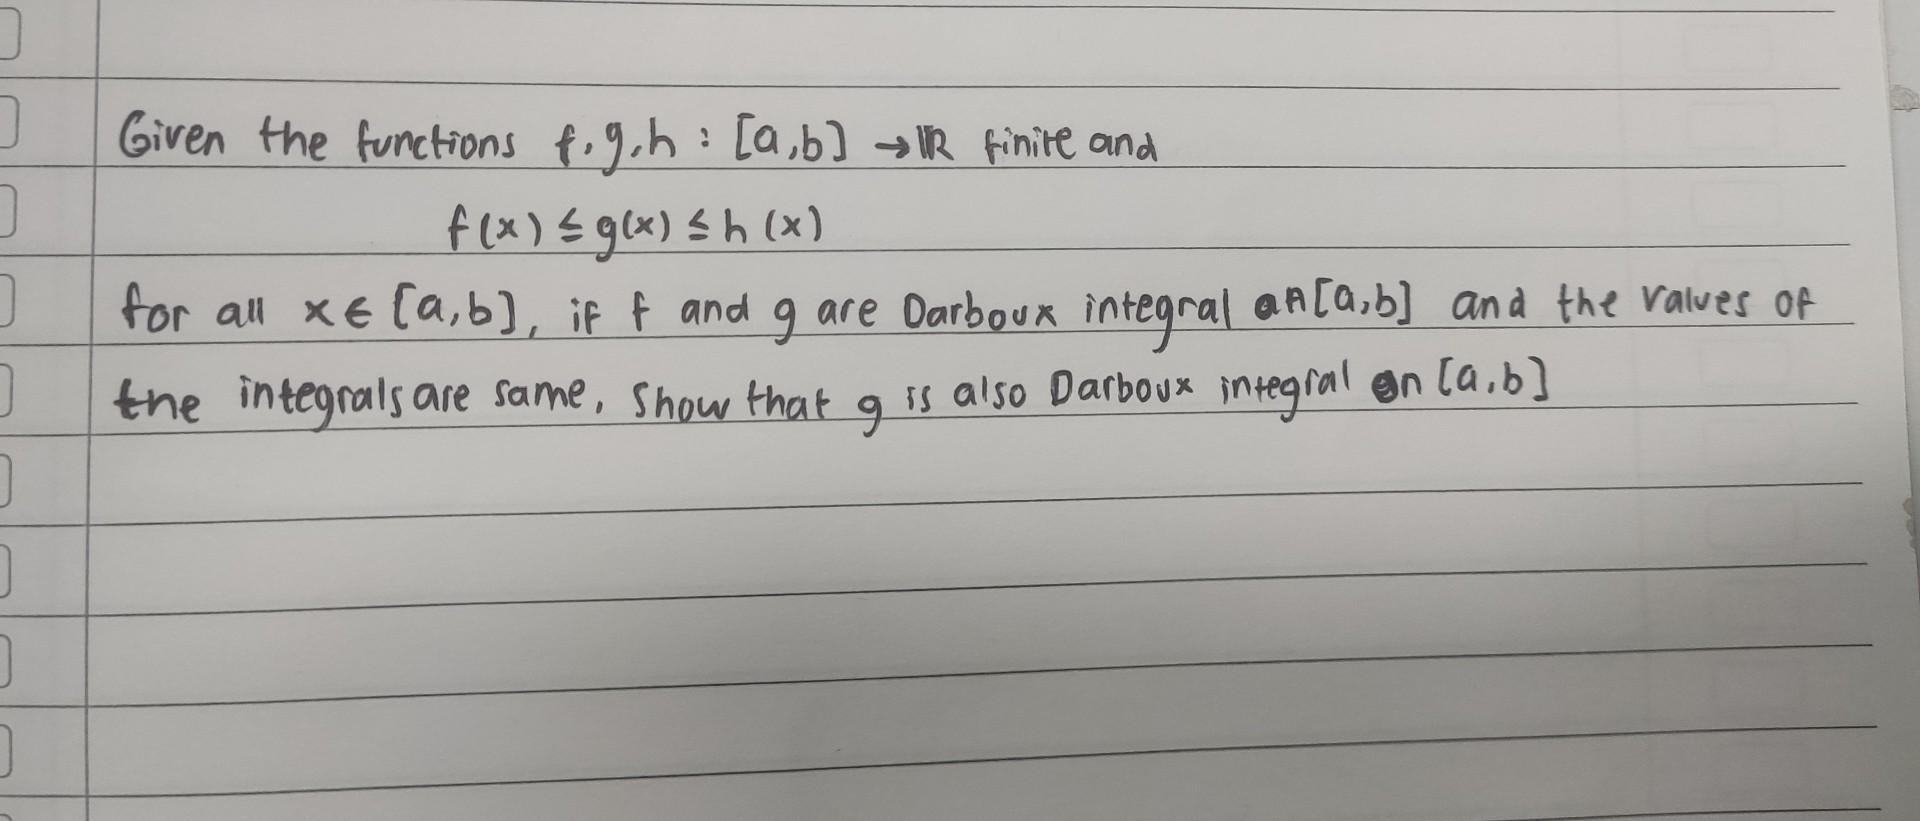 Given the functions f, g, h : [a,b] → ℝ finite and
f(x) ≤ g(x) ≤ h(x)
for all x ∈ [a,b], if f and g are Darboux integral on [a,b] and the values of
the integrals are same, show that g is also Darboux integral on [a,b]